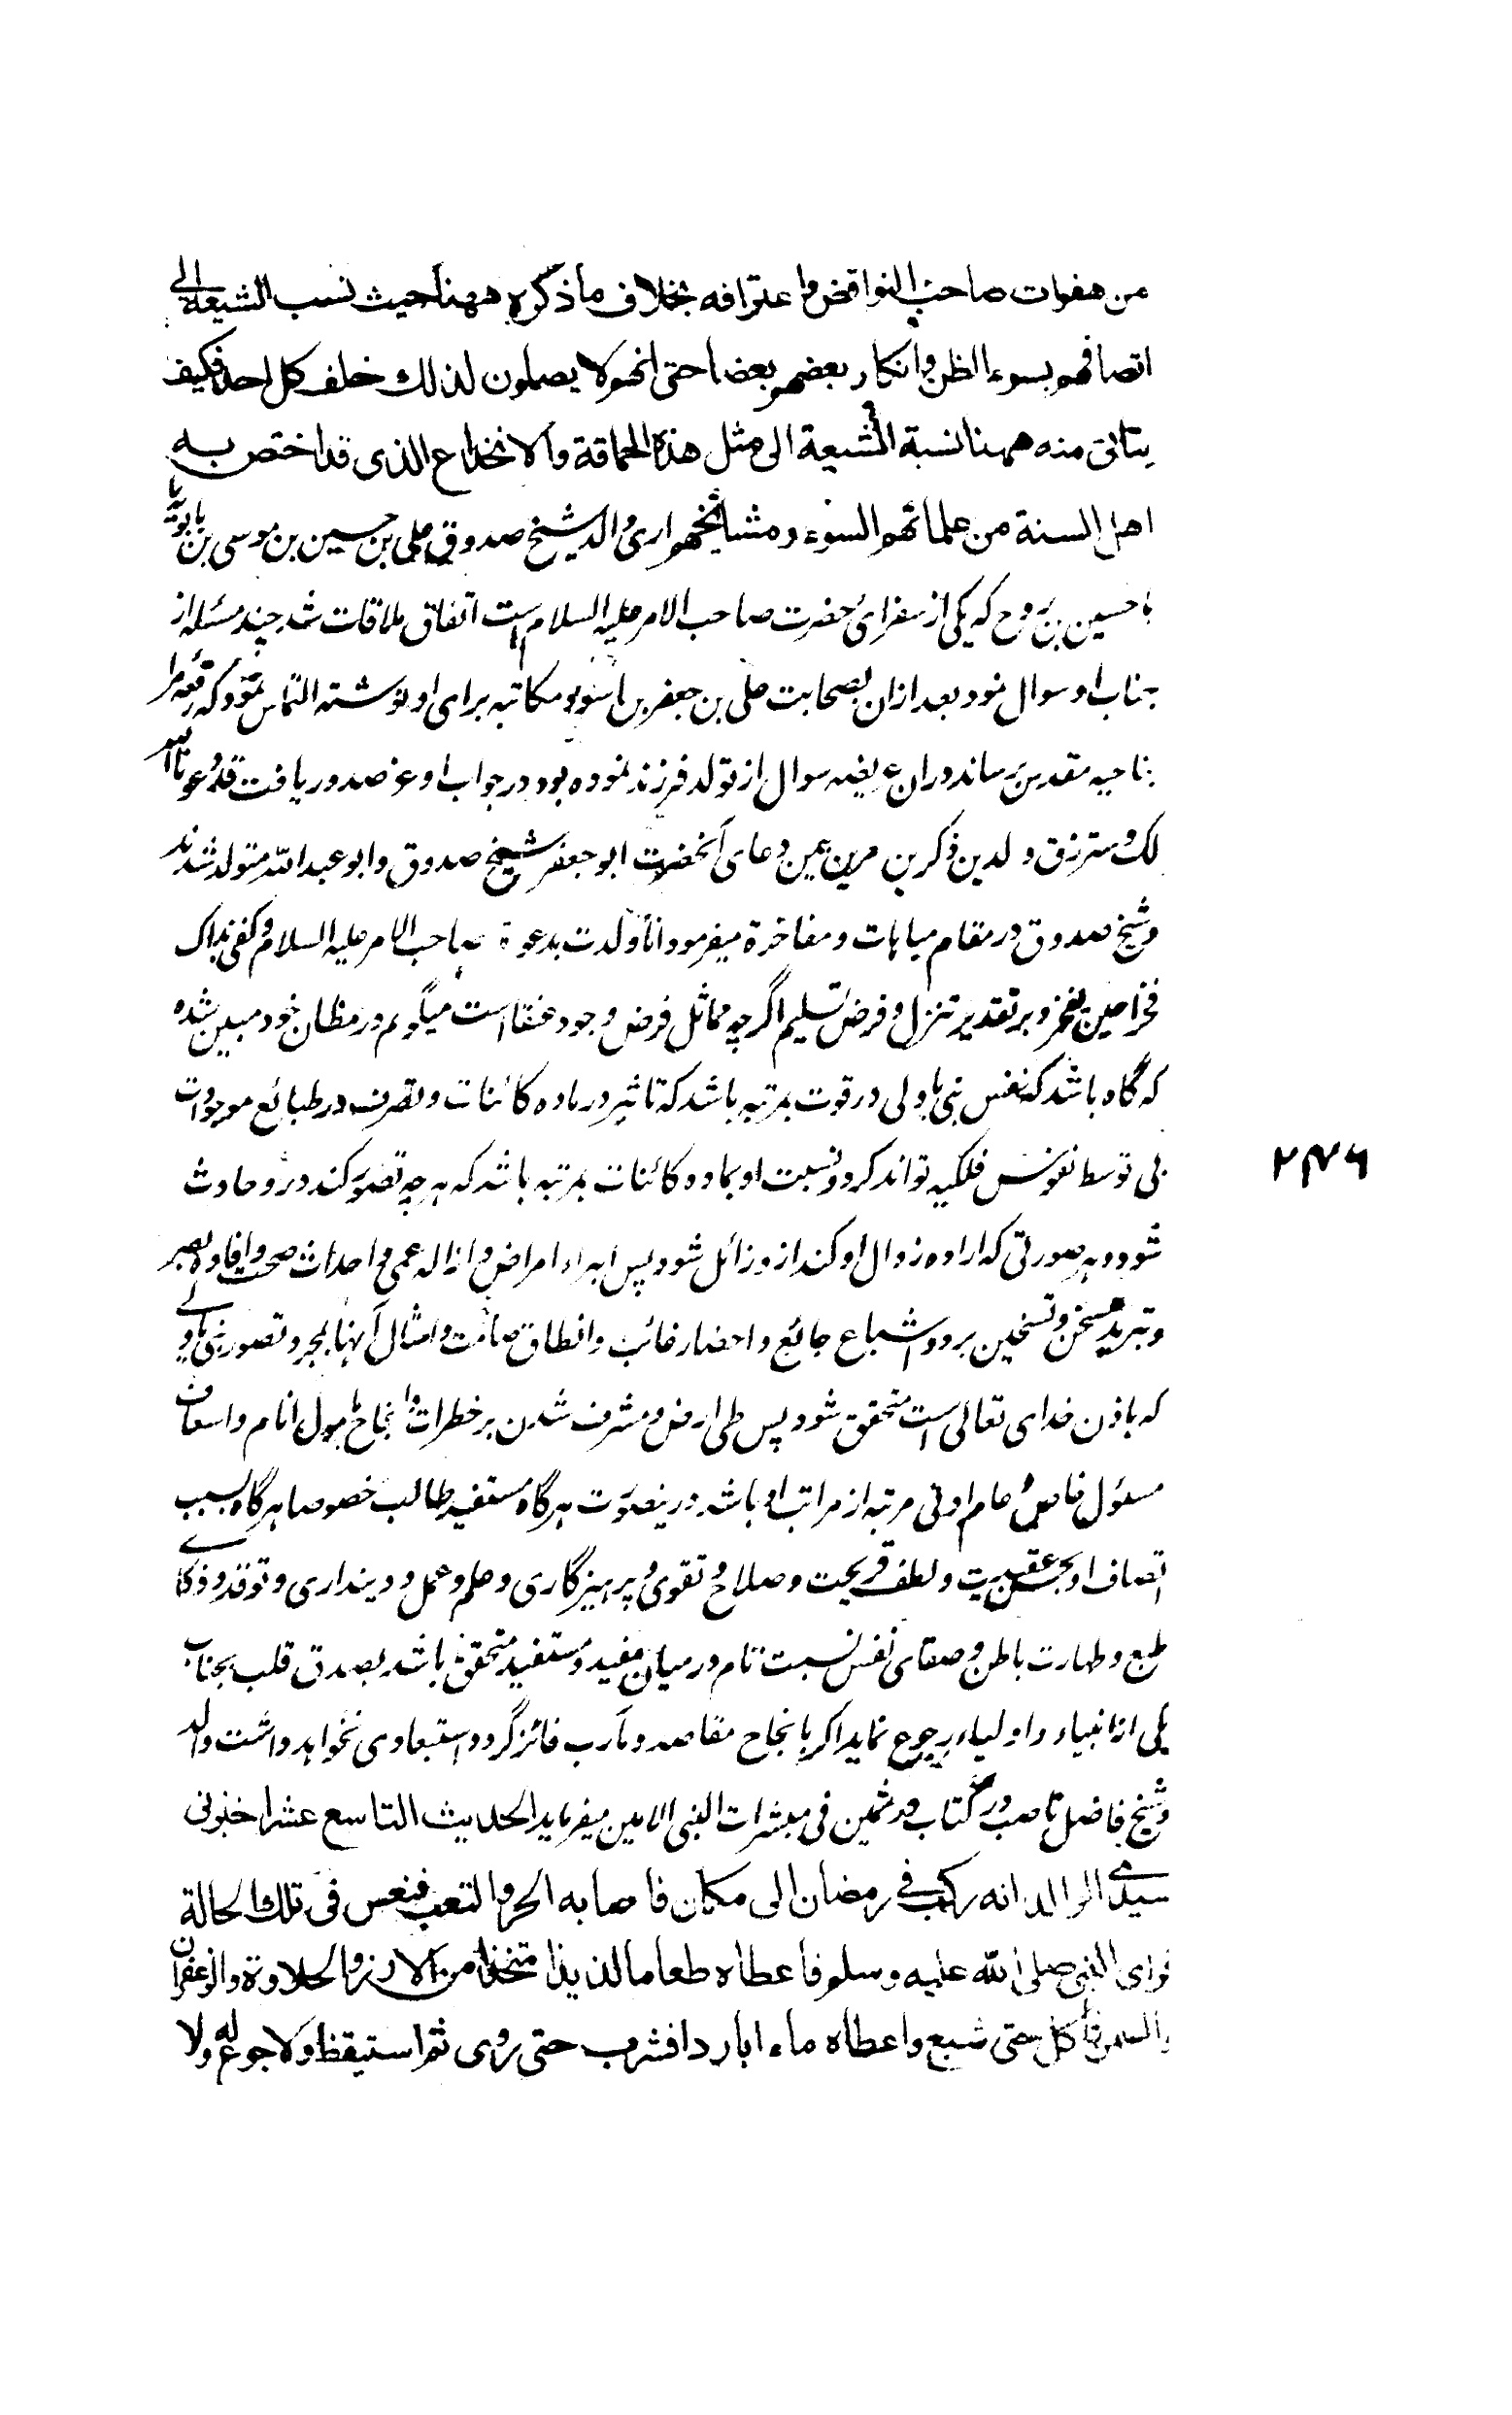 من هفوات صاحب النواقض و اعترافه بخلاف ما ذكره ههنا حيث نسب الشيعة الى
اتصافهم بسوء الظن و انكار بعضهم بعضا حتى انهم لا يصلون لذلك خلف كل احد فكيف
يتاتى منه ههنا نسبة الشيعة الى مثل هذه الحماقة والانخداع الذى قد اختص به
اهل السنة من علمائهم السوء و مشايخهم ارى والد شيخ صدوق على بن حسين بن موسى بن بابويه
با حسين بن روح كه يكى از سفراى حضرت صاحب الامر عليه السلام است اتفاق ملاقات شد چند مسئله از
جناب او سوال نمود بعد ازان بصحابت على بن جعفر بن اسود مكاتبه براى او نوشته التماس نمود كه رقعه مرا
بناحيه مقدس برساند دران عريضه سوال از تولد فرزند نموده بود در جواب او عز صدور يافت قد دعونا الله
لك و سترزق ولدين ذكرين خيرين بيمن دعاى آنحضرت ابو جعفر شيخ صدوق و ابو عبد الله متولد شدند
و شيخ صدوق در مقام مباهات و مفاخرة ميفرمود انا ولدت بدعوة صاحب الامر عليه السلام و كفى بذاك
فخرا حين يفخر و بر تقدير تنزل و فرض تسليم اگرچه مماثل فرض وجود عنقا است ميگويم در مظان خود مبين شده
كه گاه باشد كه نفس نبى يا ولى در قوت بمرتبه باشد كه تاثير در ماده كائنات و تصرف در طبائع موجودات
بى توسط نفوس فلكيه تواند كرد و نسبت او بماده كائنات بمرتبه باشد كه هرچه تصور كند درو حادث
شود و هر صورتى كه اراده زوال او كند ازو زائل شود پس ابراء امراض و ازاله عمى و احداث صحت و افاده بصر
و تبريد مسخن و تسخين برد و اشباع جائع و احضار غائب و انطاق صامت و امثال آنها بمجرد تصور نبى يا ولى
كه باذن خداى تعالى است متحقق شود پس طى ارض و مشرف شدن بر خطرات و انجاح مامول انام و اسعاف
مسئول خاص و عام ادنى مرتبه از مراتب او باشد درينصورت هرگاه مستفيد طالب خصوصا هرگاه بسبب
اتصاف او بحسن عقيدت و لطف قريحت و صلاح و تقوى و پرهيزگارى و علم و عمل و ديندارى و توقد و ذكاى
طبع و طهارت باطن و صفاى نفس نسبت تام درميان مفيد و مستفيد متحقق باشد بصدق قلب بجناب
يكى از انبياء و اولياء رجوع نمايد اگر بانجاح مقاصد و مآرب فائز گردد استبعادى نخواهد داشت والد
و شيخ فاضل ناصب در كتاب در ثمين فى مبشرات النبى الامين ميفرمايد الحديث التاسع عشر اخبرنى
سيدى الوالد انه ركب فى رمضان الى مكان فاصابه الحر والتعب فنعس فى تلك الحالة
فراى النبى صلى الله عليه وسلم فاعطاه طعاما لذيذا متخذا من الارز والحلاوة والزعفران
والسمن فاكل حتى شبع واعطاه ماء ابارد افشرب حتى روى ثم استيقظ ولا جوع له ولا
۲۴۶